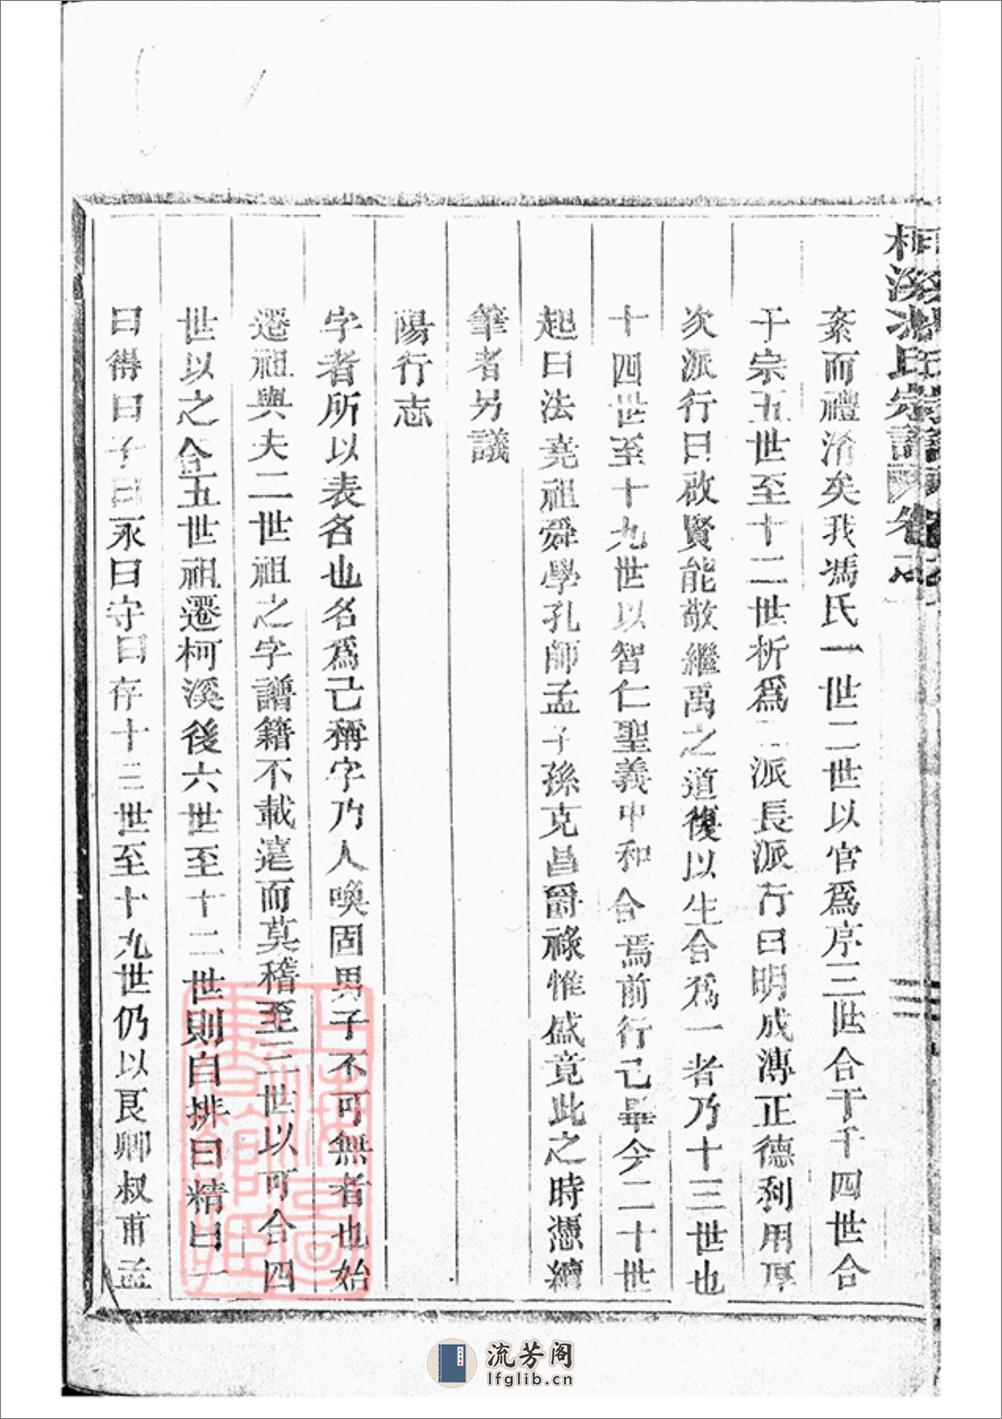 柯溪馮氏宗譜卷之
紊而禮淆矣我馮氏一世二世以官爲序三世合于千四世合
于宗五世至十二世析爲二派長派行曰明成溥正德利用厚
次派行曰啟賢能敬繼禹之道復以生合爲一者乃十三世也
十四世至十九世以智仁聖義中和合焉前行已畢今二十世
起曰法堯祖舜學孔師孟子孫克昌爵祿惟盛竟此之時憑續
筆者另議
陽行志
字者所以表名也名爲己稱字乃人喚固男子不可無者也始
遷祖與夫二世祖之字譜籍不載遠而莫稽至三世以可合四
世以之合五世祖遷柯溪後六世至十二世則自排曰精曰一
曰得曰子曰永曰守曰存十三世至十九世仍以艮卿叔甫孟
上海圖
書館藏
流芳阁
lfglib.cn